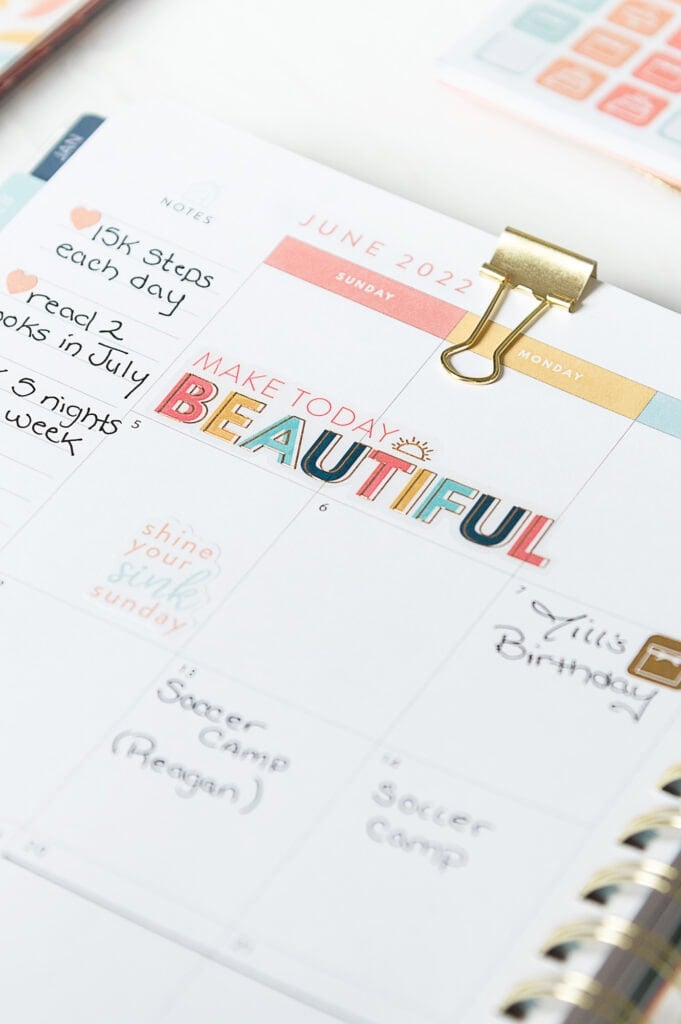 JAN
NOTES
15K Steps
each day
read 2
books in July
5 nights
week
JUNE 2022
SUNDAY
MONDAY
MAKE TODAY
BEAUTIFUL
5
shine
your
sink
sunday
6
7
Jill's
Birthday
13
Soccer
Camp
(Reagan)
Soccer
Camp